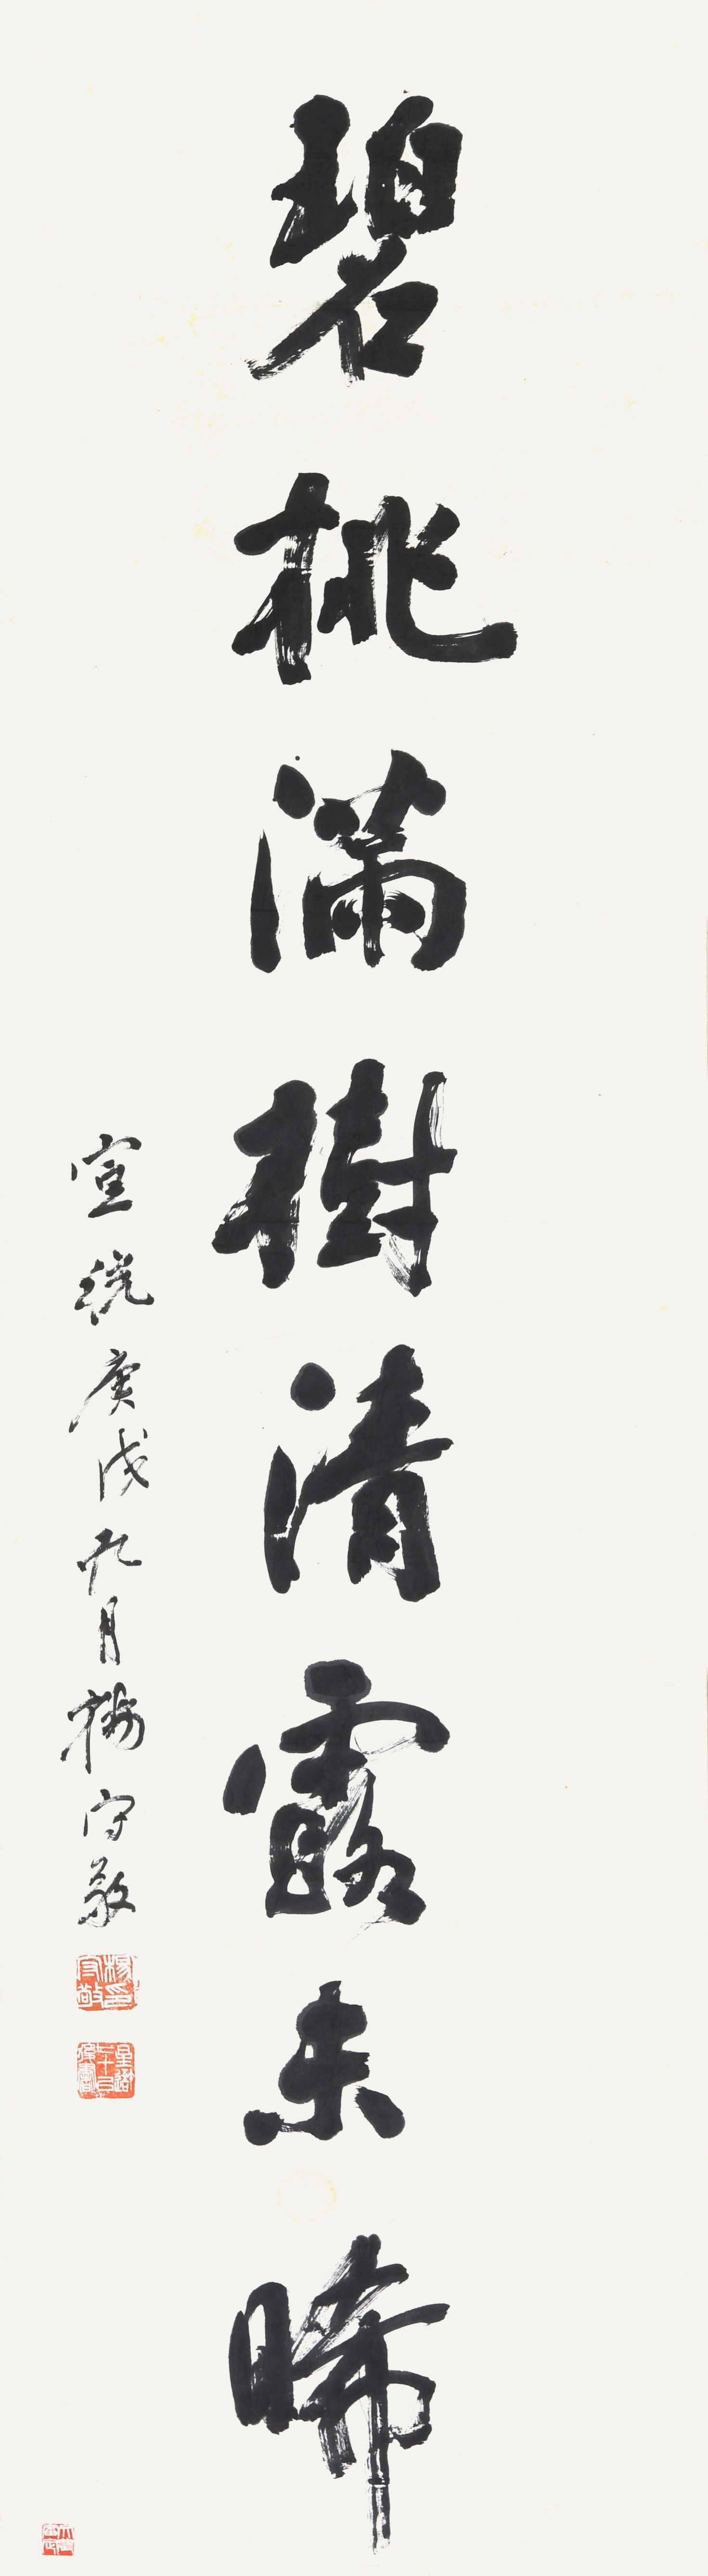 碧桃滿樹清露未晞
宣統庚戌九月楊守敬
楊守敬印
星吾七十巳後書